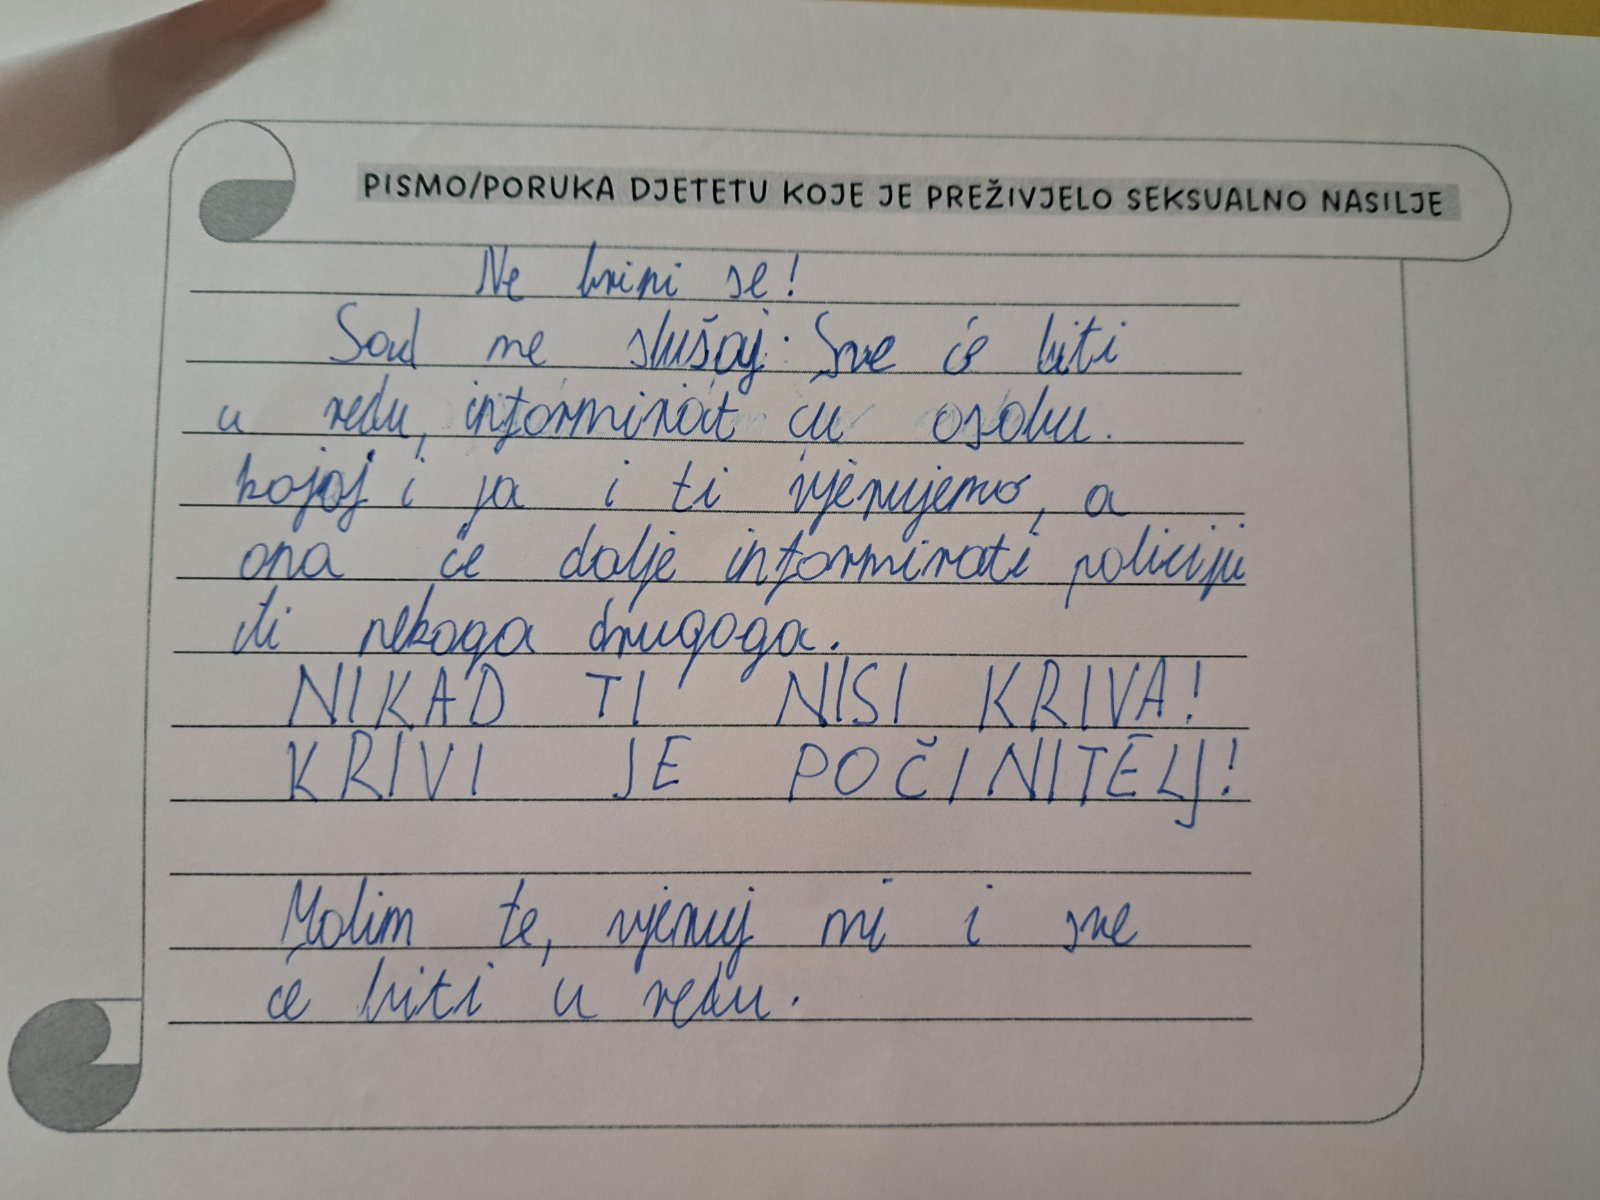 PISMO/PORUKA DJETETU KOJE JE PREŽIVJELO SEKSUALNO NASILJE
Ne brini se!
Sad me slušaj: Sve će biti
u redu, informirat ću osobu.
kojoj i ja i ti vjerujemo, a
ona će dalje informirati policiju
ili nekoga drugoga.
NIKAD TI NISI KRIVA!
KRIVI JE POČINITELJ!
Molim te, vjeruj mi i sve
će biti u redu.